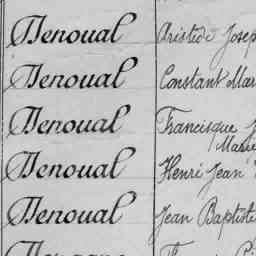 Denoual Aristide Josep
Denoual Constant Mar
Denoual Francisque J
Marie
Denoual Henri Jean
Denoual Jean Baptiste